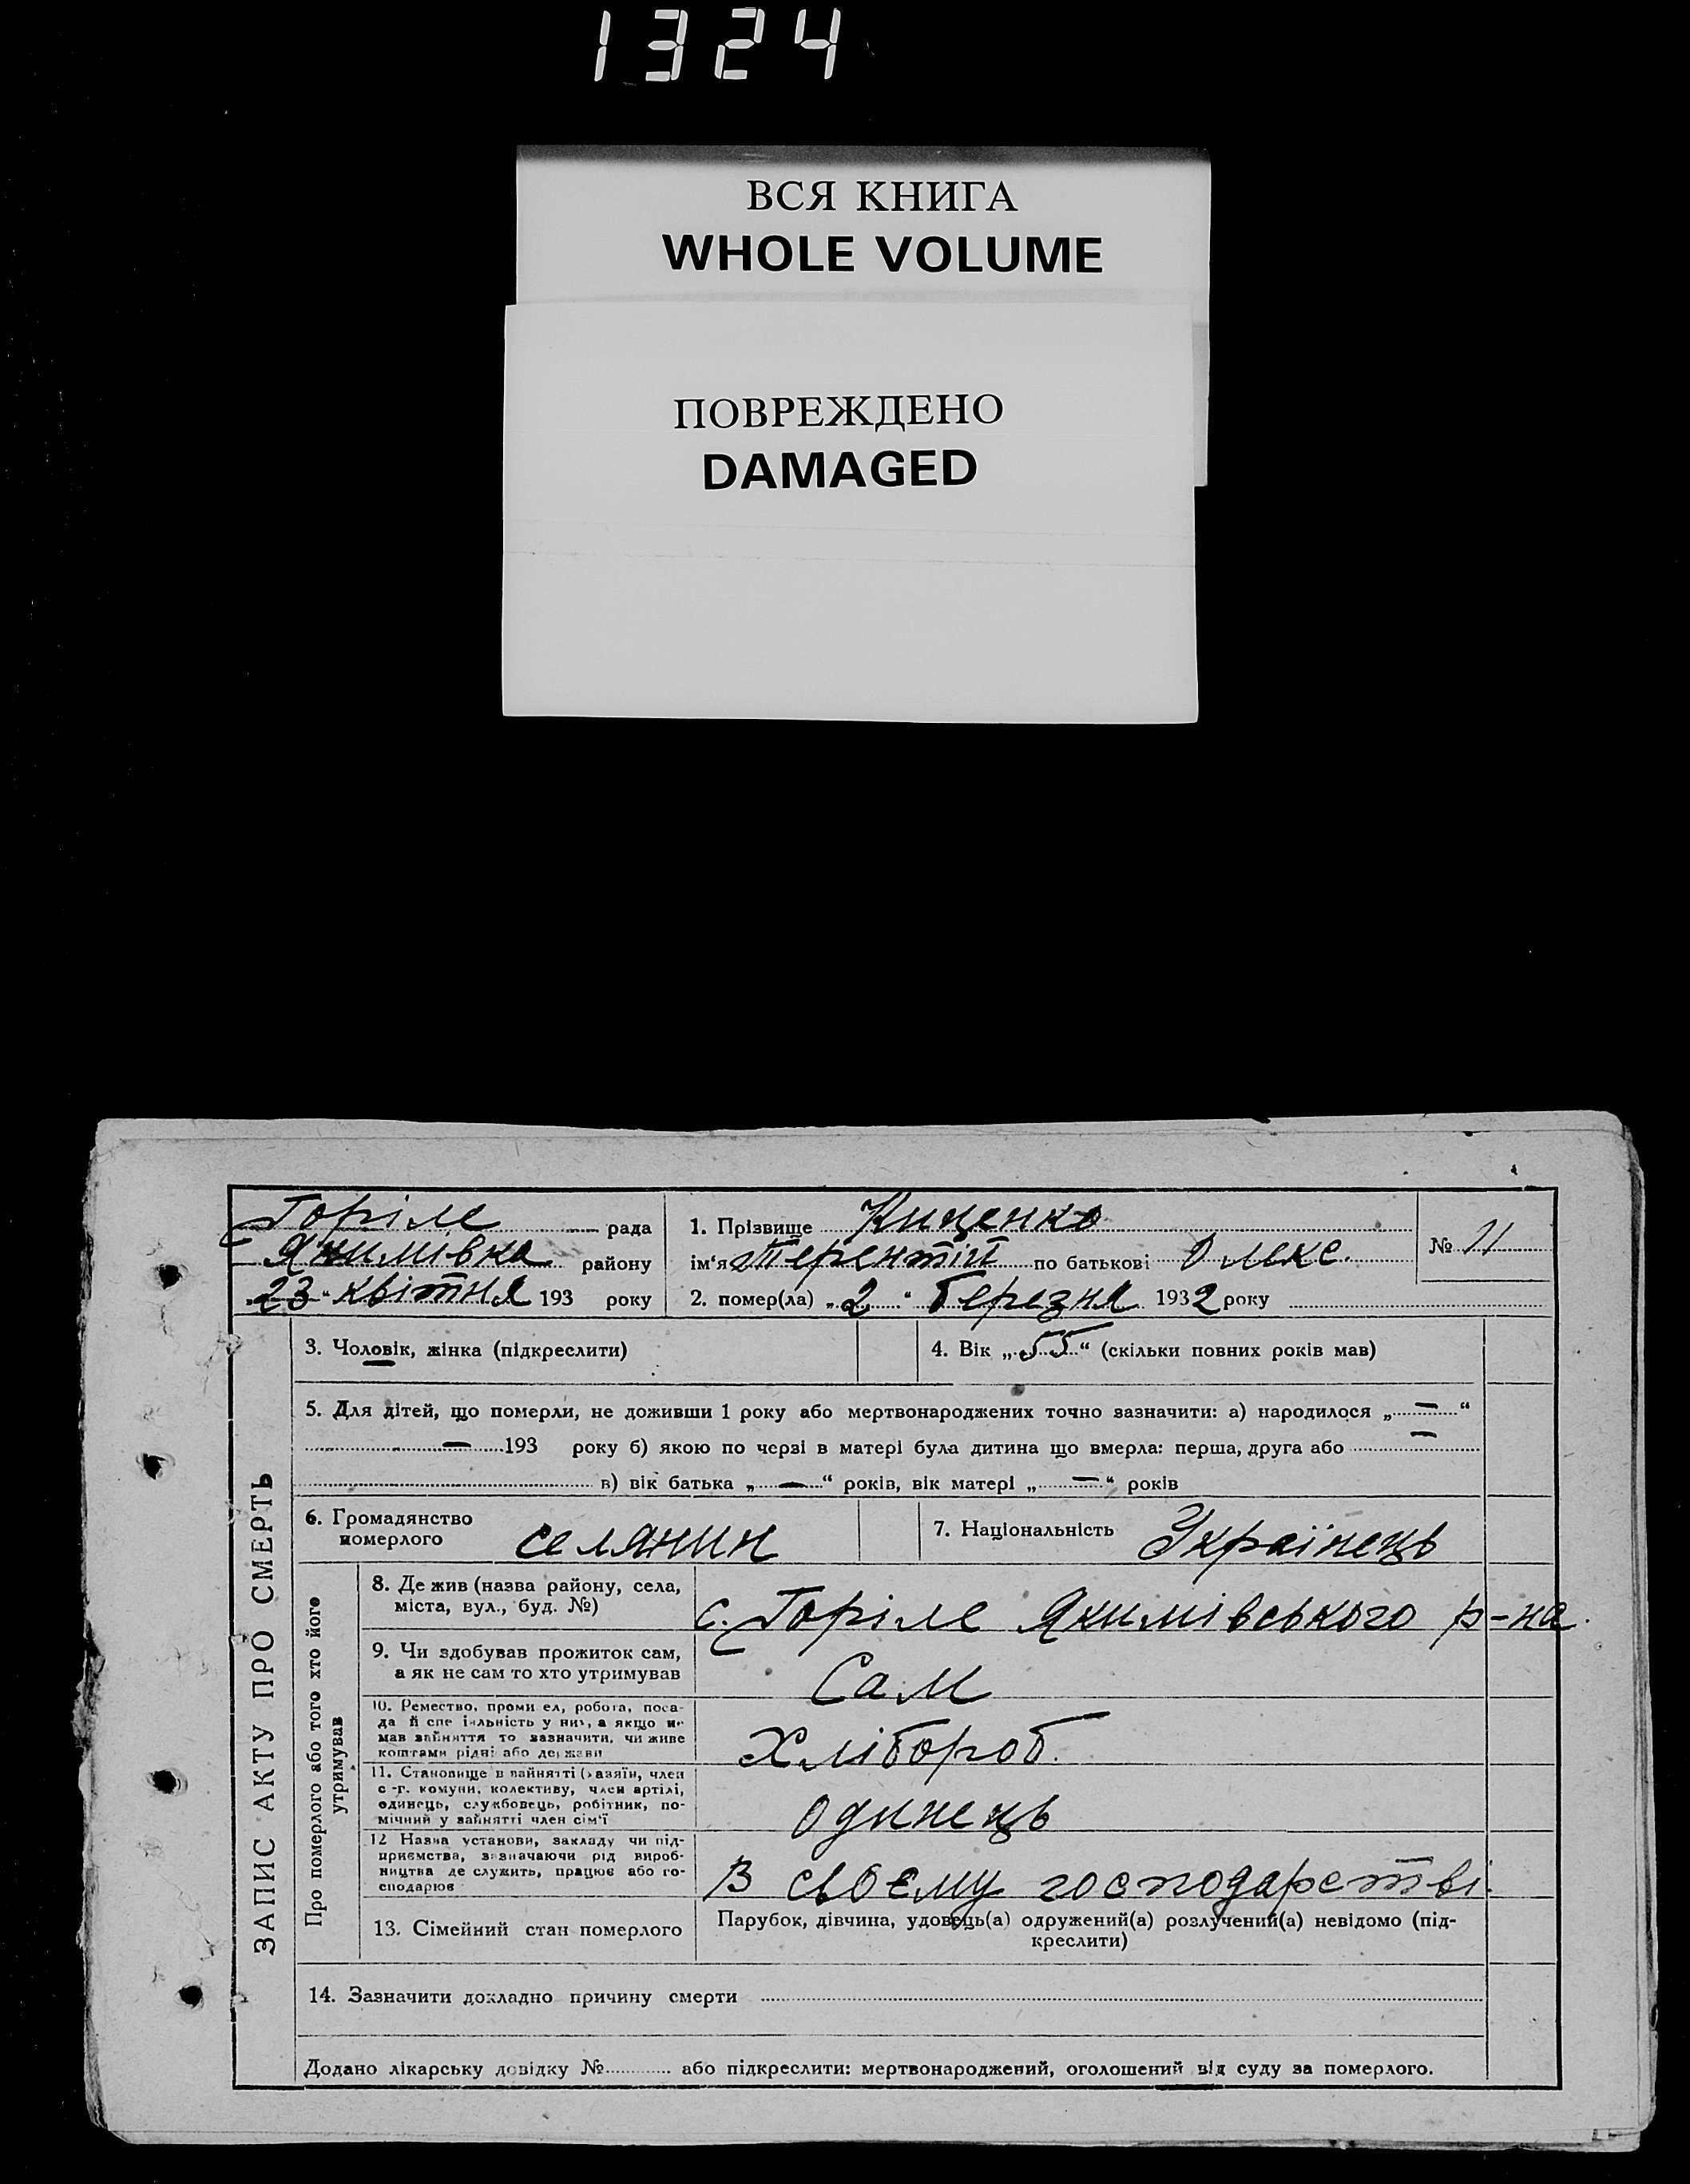 1324
ВСЯ КНИГА
WHOLE VOLUME
ПОВРЕЖДЕНО
DAMAGED
Горіле рада
Якимівка району
„23“ квітня 193 року
1. Прізвище Киценко
ім'я Терентій по батькові Олекс.
2. помер(ла) „2“ березня 1932 року
№ 11
ЗАПИС АКТУ ПРО СМЕРТЬ
3. Чоловік, жінка (підкреслити)
4. Вік „55“ (скільки повних років мав)
5. Для дітей, що померли, не доживши 1 року або мертвонароджених точно зазначити: а) народилося „—“
— 193 року б) якою по черзі в матері була дитина що вмерла: перша, друга або —
в) вік батька „—“ років, вік матері „—“ років
6. Громадянство
померлого селянин
7. Національність Українець
Про померлого або того хто його
утримував
8. Де жив (назва району, села,
міста, вул., буд. №)
с. Горіле Якимівського р-на.
9. Чи здобував прожиток сам,
а як не сам то хто утримував
Сам
10. Ремество, промисел, робота, поса-
да й спеціяльність у них, а якщо не
мав зайняття то зазначити, чи живе
коштами рідні або держави
Хлібороб.
11. Становище в зайнятті (хазяїн, член
с.-г. комуни, колективу, член артілі,
одинець, службовець, робітник, по-
мічний у зайнятті член сім'ї
одинець
12 Назва установи, закладу чи під-
приємства, зазначаючи рід вироб-
ництва де служить, працює або го-
сподарює
В своєму господарстві.
13. Сімейний стан померлого
Парубок, дівчина, удовець(а) одружений(а) розлучений(а) невідомо (під-
креслити)
14. Зазначити докладно причину смерти
Додано лікарську довідку № або підкреслити: мертвонароджений, оголошений від суду за померлого.